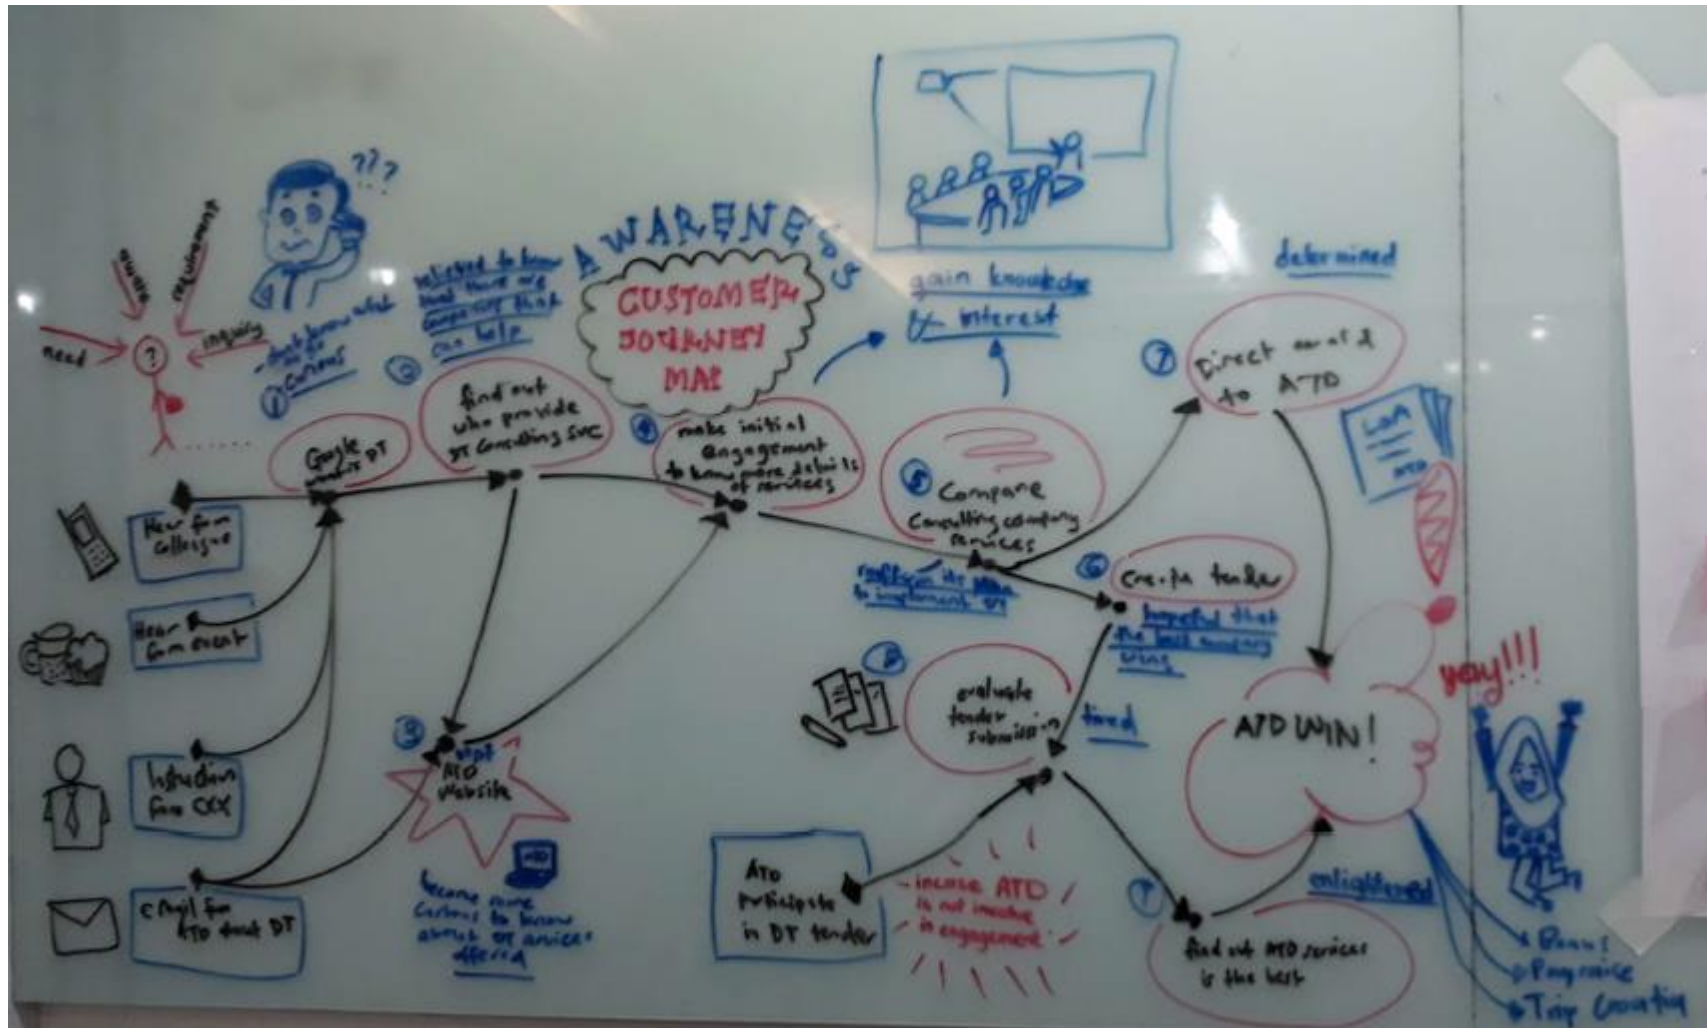 ???
need
awate
requirement
inquiry
?
- don't know what
to do
- curious
1
2
relieved to know
that there are
companies that
can help
AWARENESS
CUSTOMER
JOURNEY
MAP
gain knowledge
& interest
determined
Google
what is DT
find out
who provide
DT Consulting SVC
4
make initial
engagement
to know more details
of services
5
Compare
Consulting company
services
7
Direct award
to ATD
LOA
ATD
Hear from
colleague
Hear
from event
Instruction
from CXX
email from
ATD about DT
3
ATD
website
become more
curious to know
about DT services
offered
to implement DT
6
create tender
hopeful that
the best company
wins
8
evaluate
tender
submission
tired
ATD
participate
in DT tender
incase ATD
is not involve
in engagement
find out ATD services
is the best
enlightened
ATD WIN!
yeay!!!
Bonus
Payraise
Trip Croatia